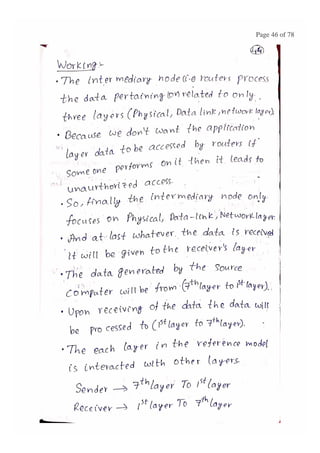 Page 46 of 78
44
Working :-
• The inter mediary node (i.e routers process
the data pertaining (or) related to only
three layers (Physical, Data link, network layer)
• Because we don't want the application
layer data to be accessed by routers if
some one performs on it then it leads to
unauthorized access.
• So, finally the intermediary node only
focuses on Physical, Data-link, Network layer.
• And at last whatever the data is received
it will be given to the receiver's layer
• The data generated by the source
computer will be from (7th layer to 1st layer).
• Upon receiving of the data the data will
be pro cessed to (1st layer to 7th layer).
• The each layer in the reference model
is interacted with other layers.
Sender → 7th layer To 1st layer
Receiver → 1st layer To 7th layer